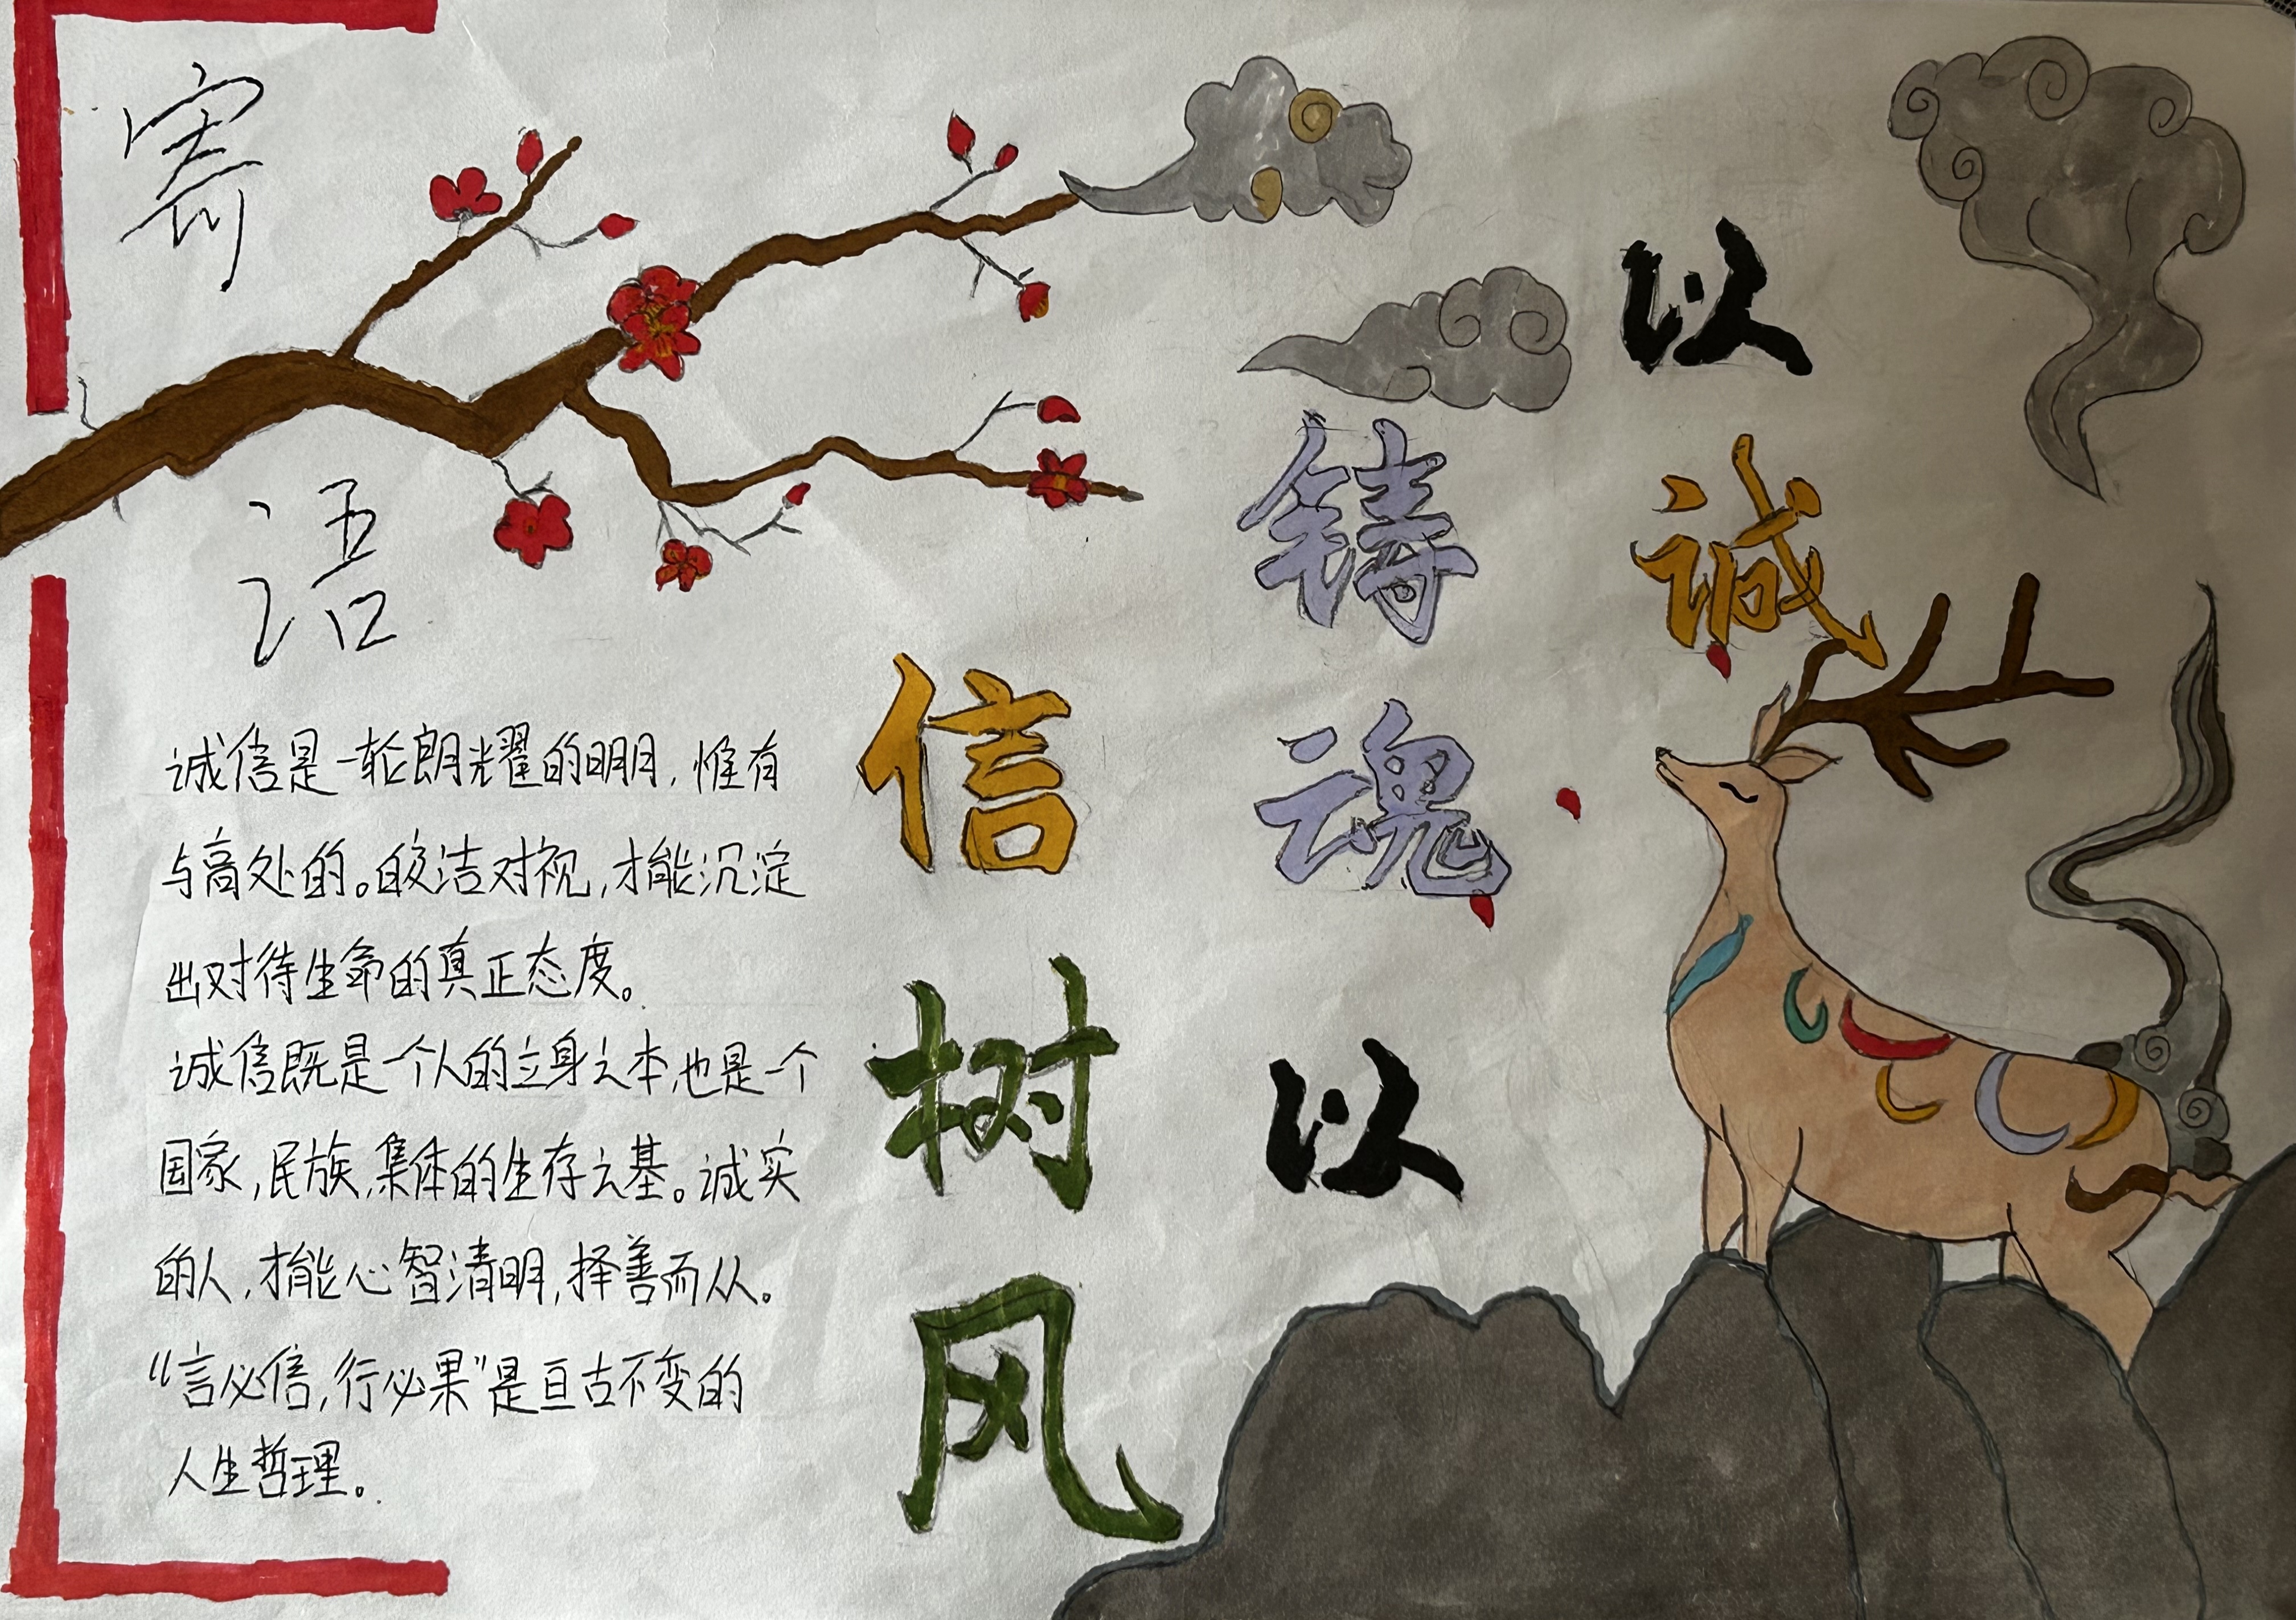 以诚
铸魂以
信树风
寄语
诚信是一轮朗耀的明月,惟有
与高处的。皎洁对视,才能沉淀
出对待生命的真正态度。
诚信既是一个人的立身之本,也是一个
国家,民族,集体的生存之基。诚实
的人,才能心智清明,择善而从。
“言必信,行必果”是亘古不变的
人生哲理。